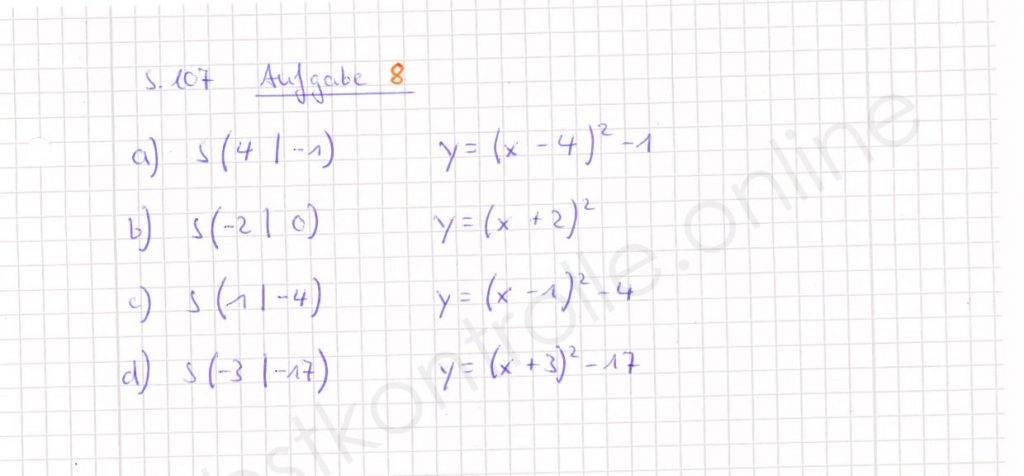 S. 107 Aufgabe 8
a) S(4 | -1) y = (x - 4)² - 1
b) S(-2 | 0) y = (x + 2)²
c) S(1 | -4) y = (x - 1)² - 4
d) S(-3 | -17) y = (x + 3)² - 17
estkontrolle.online